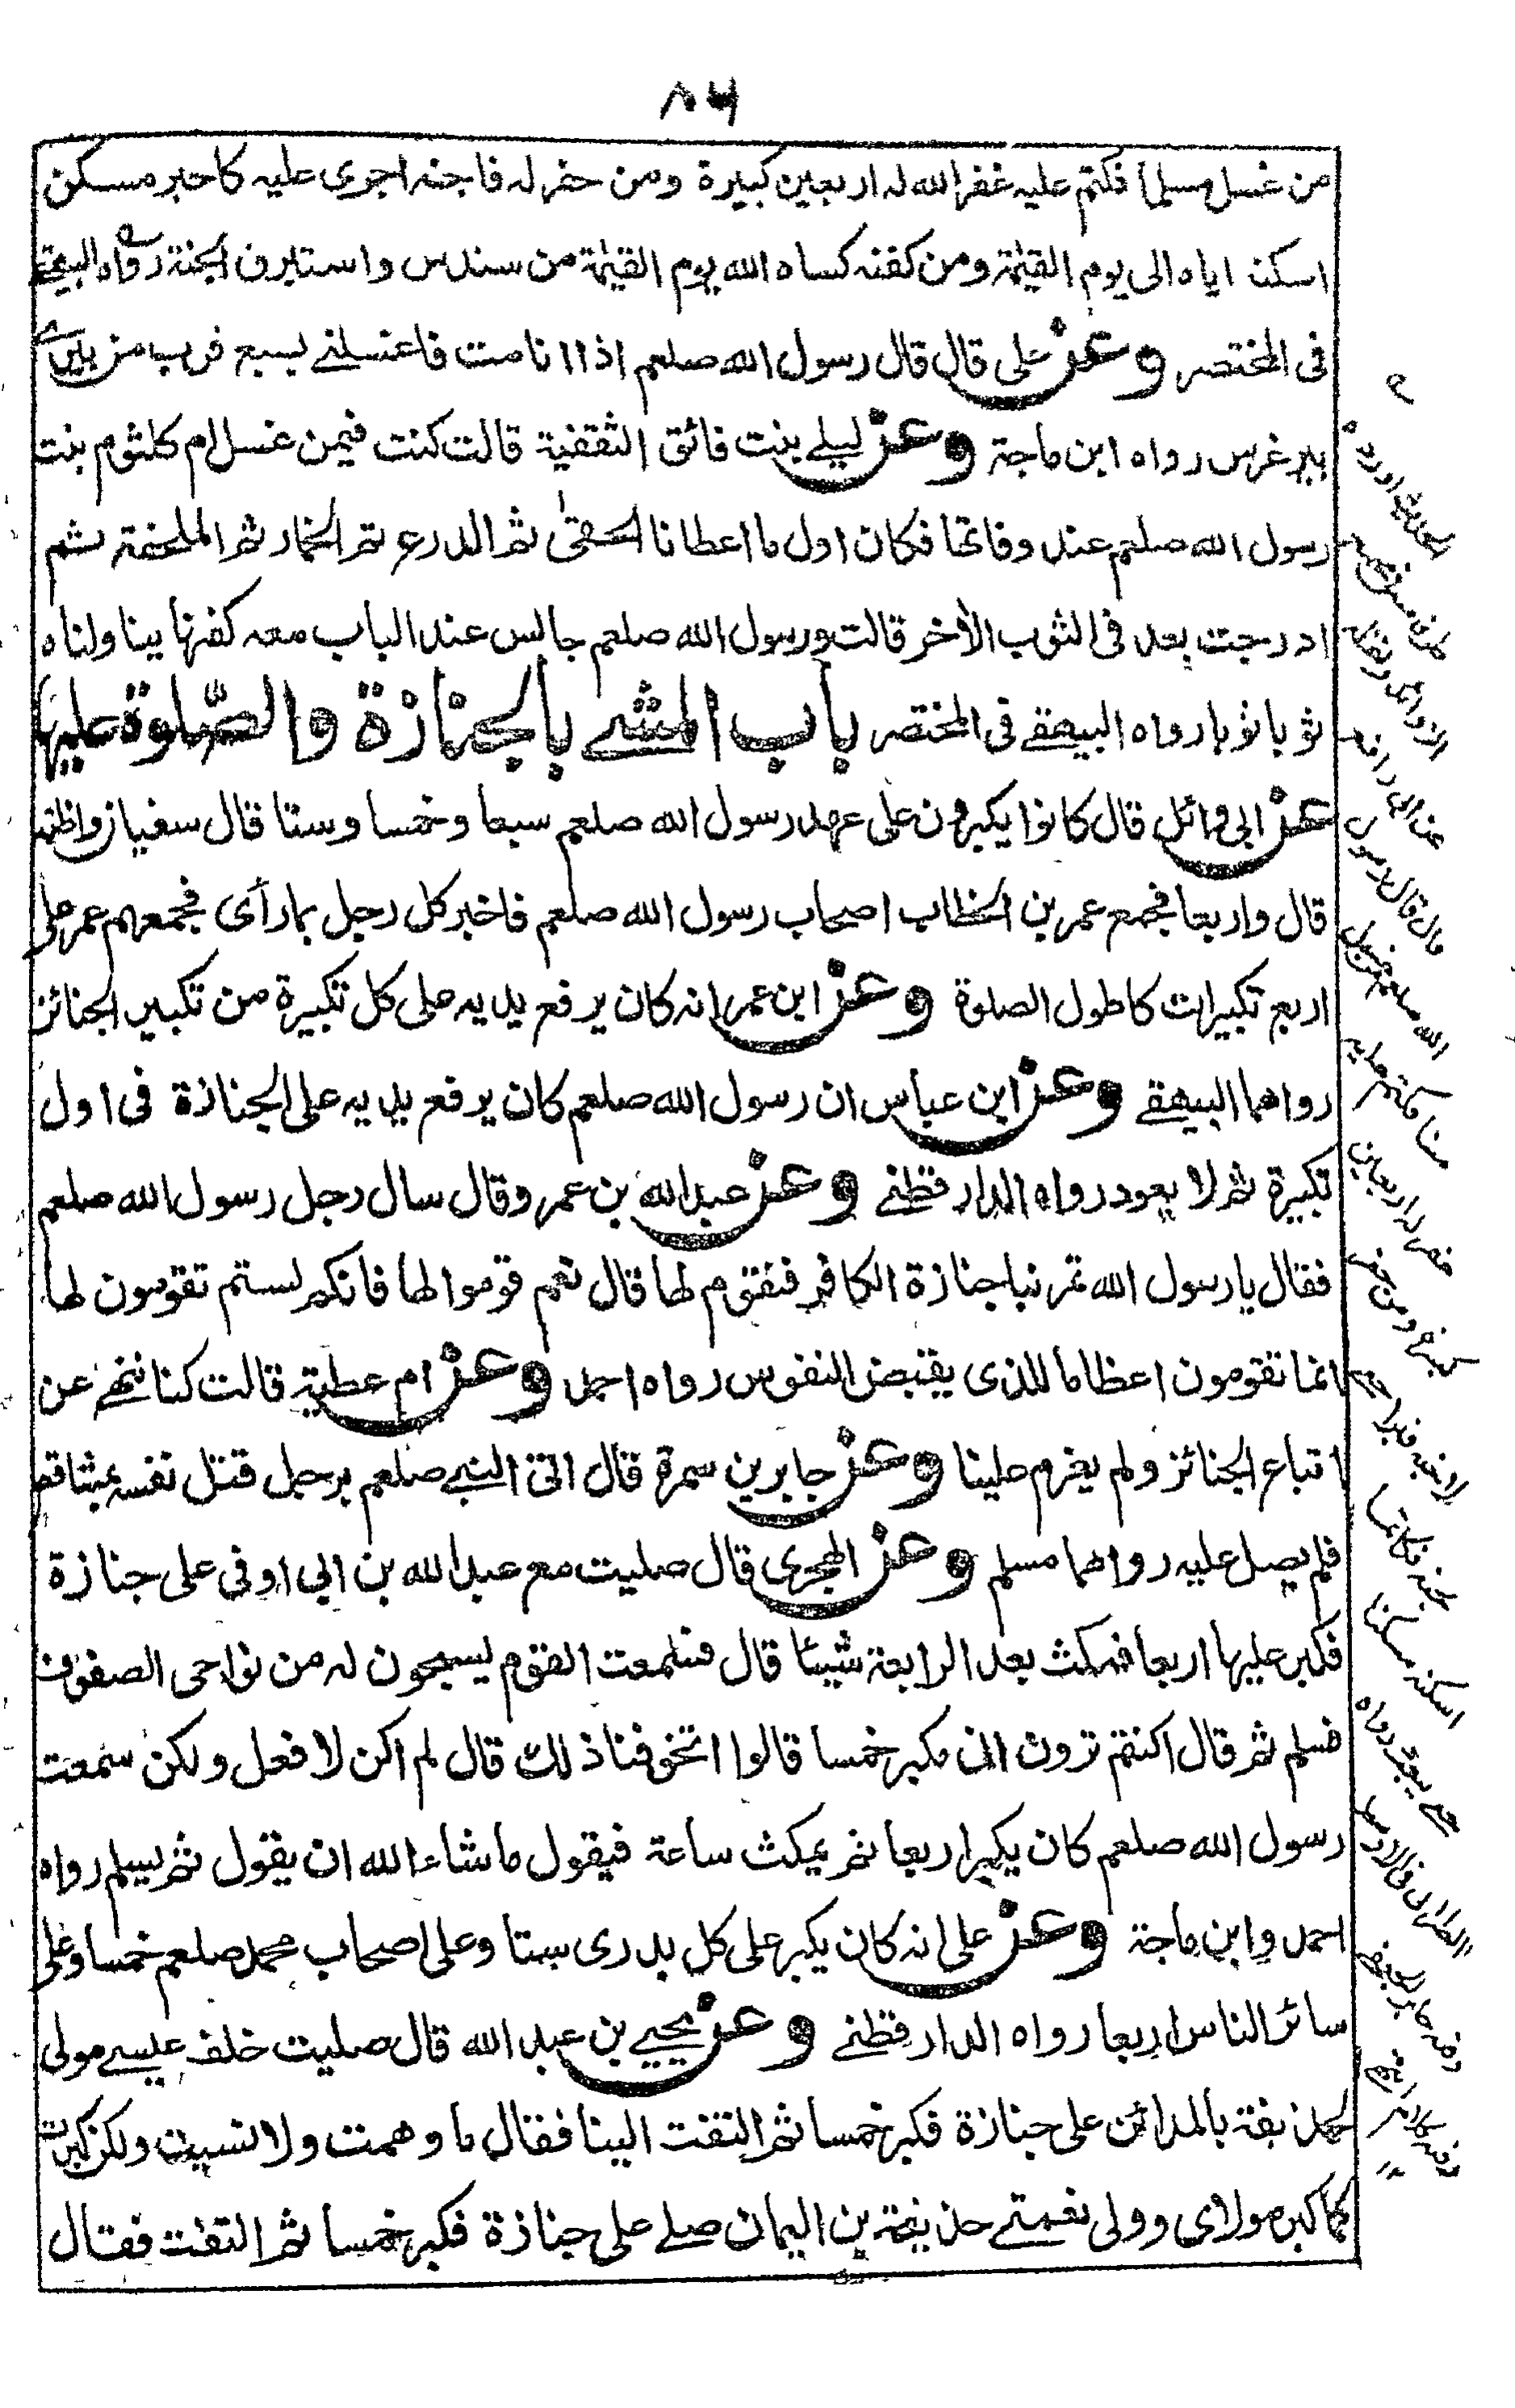 ٨٦
من غسل مسلما فكتم عليه غفر الله له اربعين كبيرة ومن حفر له فاجنه اجرى عليه كاجر مسكن
اسكنه اياه الى يوم القيٰمة ومن كفنه كساه الله يوم القيٰمة من سندس واستبرق الجنة رواه البيهقے
فى المختصر وعن على قال قال رسول الله صلعم اذا انا مت فاغسلنے بسبع قرب من بيرے
بير غرس رواه ابن ماجة وعن ليلے بنت قائق الثقفية قالت كنت فيمن غسل ام كلثوم بنت
رسول الله صلعم عند وفاتها فكان اول ما اعطانا الحقىٰ ثم الدرع ثم الخمار ثم الملحفة ثم
ادرجت بعد فى الثوب الأخر قالت ورسول الله صلعم جالس عند الباب معه كفنها يناولناه
ثوبا ثوبا رواه البيهقے فى المختصر باب المشے بالجنازة والصّلوة عليها
عن ابى وائل قال كانوا يكبرون على عهد رسول الله صلعم سبعا وخمسا وستا قال سفيان واظنه
قال واربعا فجمع عمر بن الخطاب اصحاب رسول الله صلعم فاخبر كل رجل بما رأى فجمعهم عمر على
اربع تكبيرات كاطول الصلوة وعن ابن عمر انه كان يرفع يديه على كل تكبيرة من تكبير الجنائز
رواهما البيهقے وعن ابن عباس ان رسول الله صلعم كان يرفع يديه على الجنازة فى اول
تكبيرة ثم لا يعود رواه الدار قطنے وعن عبد الله بن عمرو قال سال رجل رسول الله صلعم
فقال يا رسول الله تمر بنا جنازة الكافر فنقوم لها قال نعم قوموا لها فانكم لستم تقومون لها
انما تقومون اعظاما للذى يقبض النفوس رواه احمد وعن ام عطية قالت كنا ننهے عن
اتباع الجنائز ولم يعزم علينا وعن جابر بن سمرة قال اتى النبے صلعم برجل قتل نفسه بمشاقص
فلم يصل عليه رواهما مسلم وعن الهجرى قال صليت مع عبد الله بن ابى اوفى على جنازة
فكبر عليها اربعا فمكث بعد الرابعة شيئا قال فسمعت القوم يسبحون له من نواحى الصفوف
فسلم ثم قال اكنتم ترون انى مكبر خمسا قالوا اتخوفنا ذلك قال لم اكن لافعل ولكن سمعت
رسول الله صلعم كان يكبر اربعا ثم يمكث ساعة فيقول ما شاء الله ان يقول ثم يسلم رواه
احمد وابن ماجة وعن على انه كان يكبر على كل بدرى ستا وعلى اصحاب محمد صلعم خمسا وعلى
سائر الناس اربعا رواه الدار قطنے وعن يحيے بن عبد الله قال صليت خلف عيسے مولى
لحذيفة بالمدائن على جنازة فكبر خمسا ثم التفت الينا فقال ما وهمت ولا نسيت ولكن كبرت
كما كبر مولاى وولى نعمتے حذيفة بن اليمان صلے على جنازة فكبر خمسا ثم التفت فقال
عن ابى رافع
قال قال رسول
الله صلعم من غسل
ميتا فكتم عليه